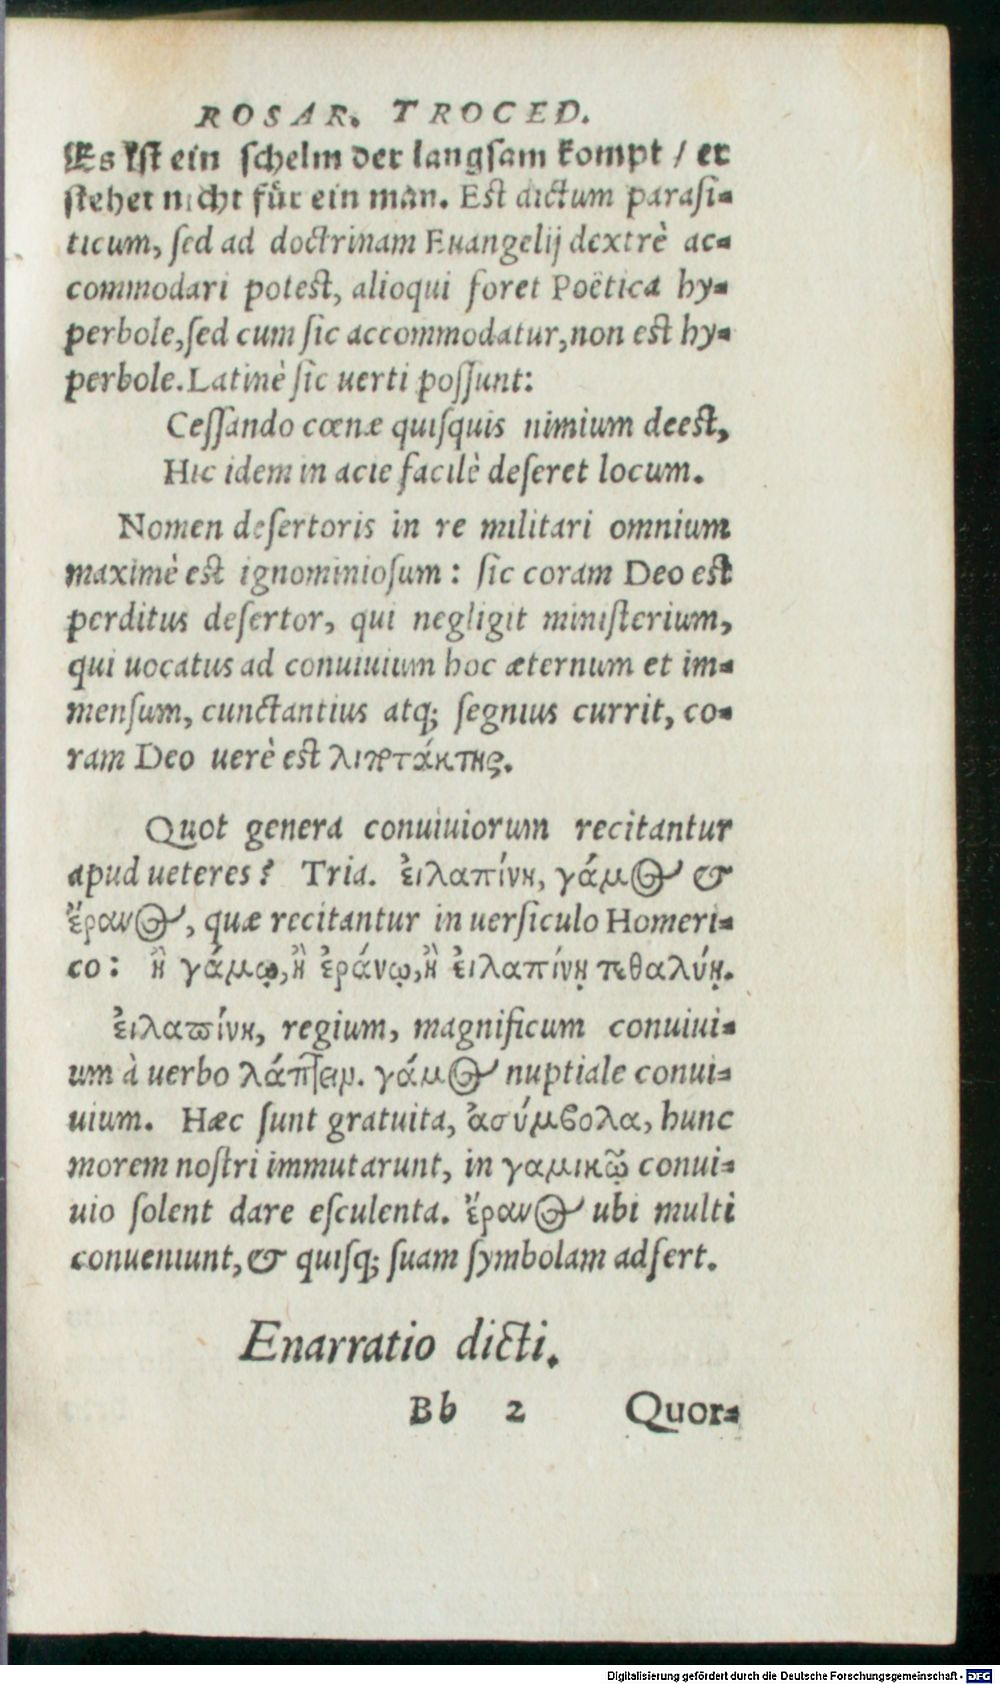 ROSAR. TROCED.
Es ist ein schelm der langsam kompt / er
stehet nicht für ein man. Est dictum parasi-
ticum, sed ad doctrinam Euangelij dextrè ac-
commodari potest, alioqui foret Poëtica hy-
perbole, sed cum sic accommodatur, non est hy-
perbole. Latinè sic uerti possunt:
Cessando cœnæ quisquis nimium deest,
Hic idem in acie facilè deseret locum.
Nomen desertoris in re militari omnium
maximè est ignominiosum: sic coram Deo est
perditus desertor, qui negligit ministerium,
qui uocatus ad conuiuium hoc æternum et im-
mensum, cunctantius atq; segnius currit, co-
ram Deo uerè est λιποτάκτης.
Quot genera conuiuiorum recitantur
apud ueteres? Tria. ἐιλαπίνη, γάμος &
ἔρανος, quæ recitantur in uersiculo Homeri-
co: ἢ γάμῳ, ἢ ἐράνῳ, ἢ ἐιλαπίνῃ τεθαλύῃ.
ἐιλαπίνη, regium, magnificum conuiui-
um à uerbo λάπτειν. γάμος nuptiale conui-
uium. Hæc sunt gratuita, ἀσύμβολα, hunc
morem nostri immutarunt, in γαμικῷ conui-
uio solent dare esculenta. ἔρανος ubi multi
conueniunt, & quisq; suam symbolam adfert.
Enarratio dicti.
Bb 2 Quor-
Digitalisierung gefördert durch die Deutsche Forschungsgemeinschaft - DFG